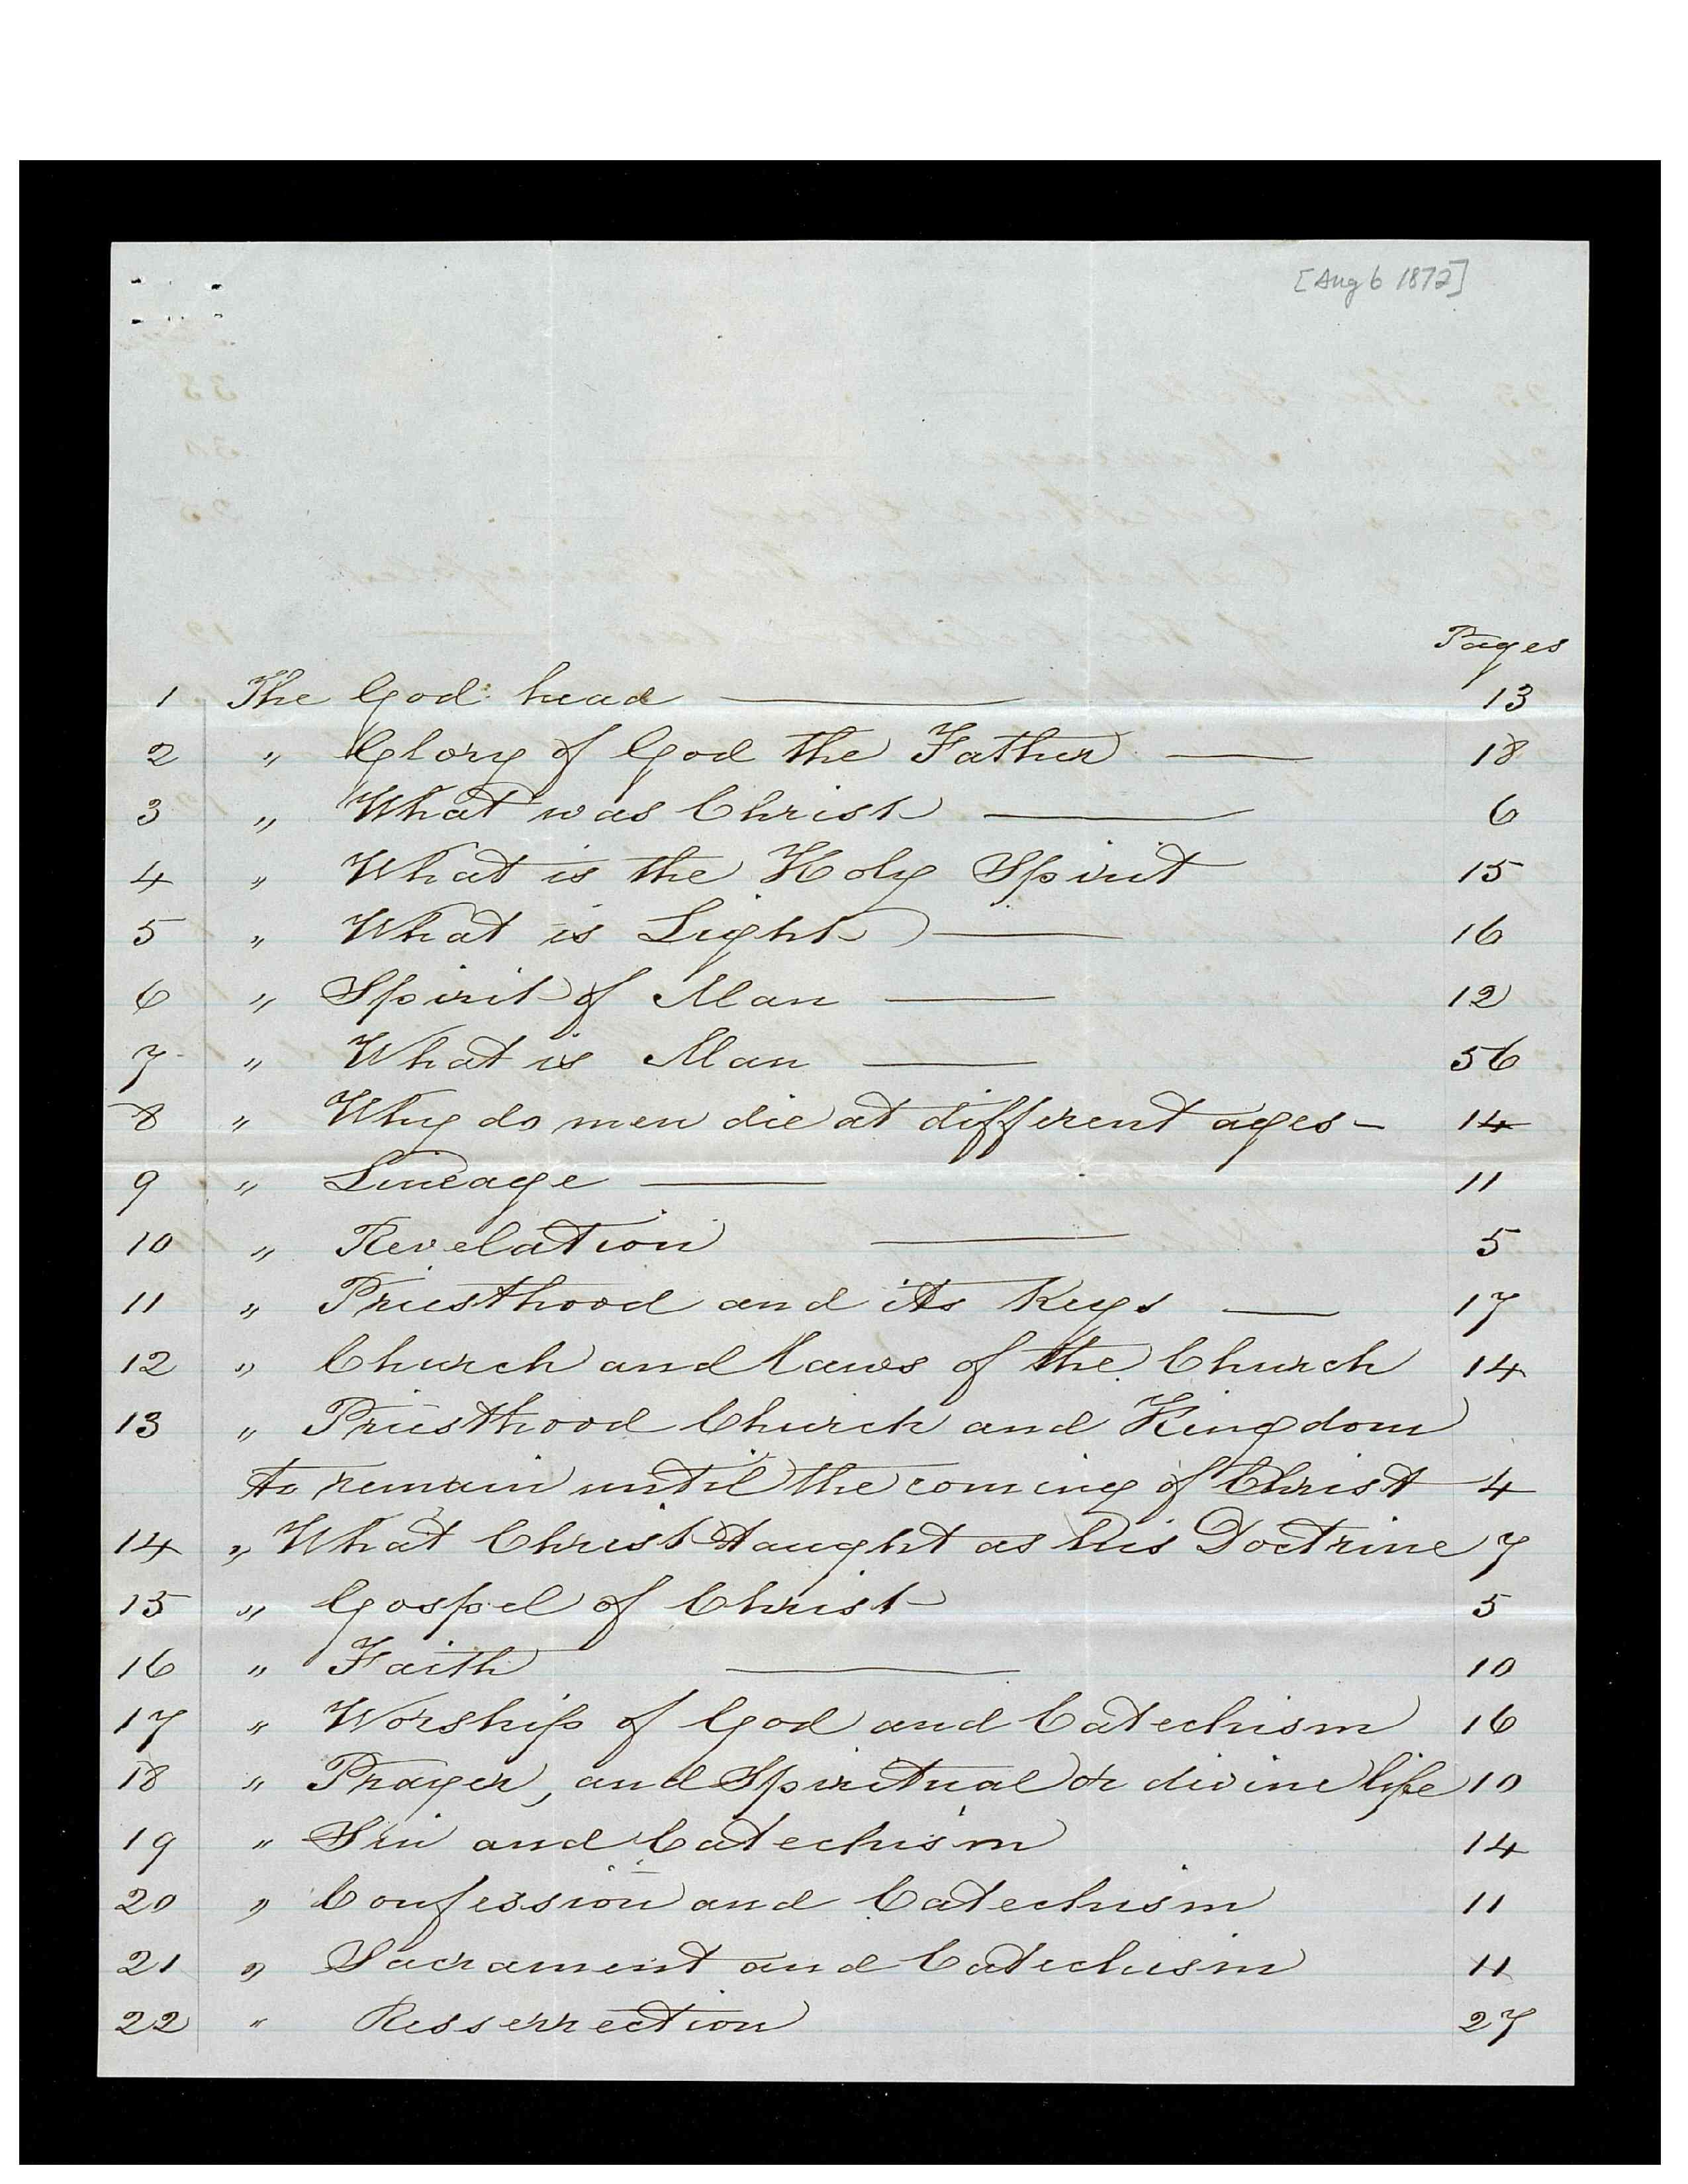 [Aug 6 1872]
Pages
1 The God head — 13
2 " Glory of God the Father — 18
3 " What was Christ — 6
4 " What is the Holy Spirit 15
5 " What is Light — 16
6 " Spirit of Man — 12
7 " What is Man — 56
8 " Why do men die at different ages — 14
9 " Lineage — 11
10 " Revelation — 5
11 " Priesthood and its Keys — 17
12 " Church and laws of the Church 14
13 " Priesthood Church and Kingdom
to remain until the coming of Christ 4
14 " What Christ taught as his Doctrine 7
15 " Gospel of Christ 5
16 " Faith — 10
17 " Worship of God and Catechism 16
18 " Prayer, and Spiritual or divine life 10
19 " Sin and Catechism 14
20 " Confession and Catechism 11
21 " Sacrament and Catechism 11
22 " Resserrection 27